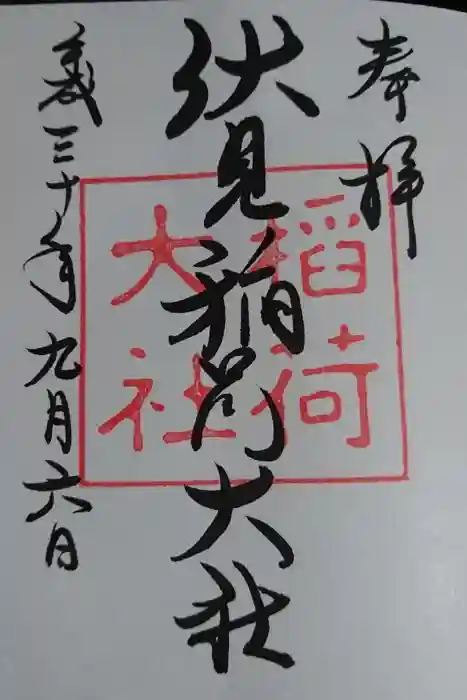 奉拝
伏見稲荷大社
稲荷
大社
三十年九月六日